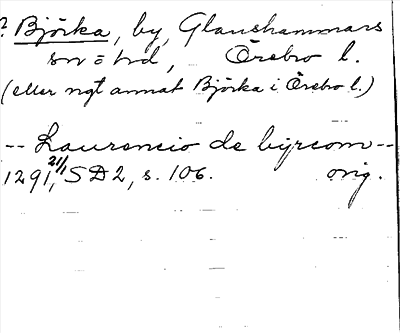 ? Björka, by, Glanshammars
sn o hd, Örebro l.
(eller ngt annat Björka i Örebo l.)
-- Laurencio de byrcom --
1291 21/1, SD2, s. 106. orig.